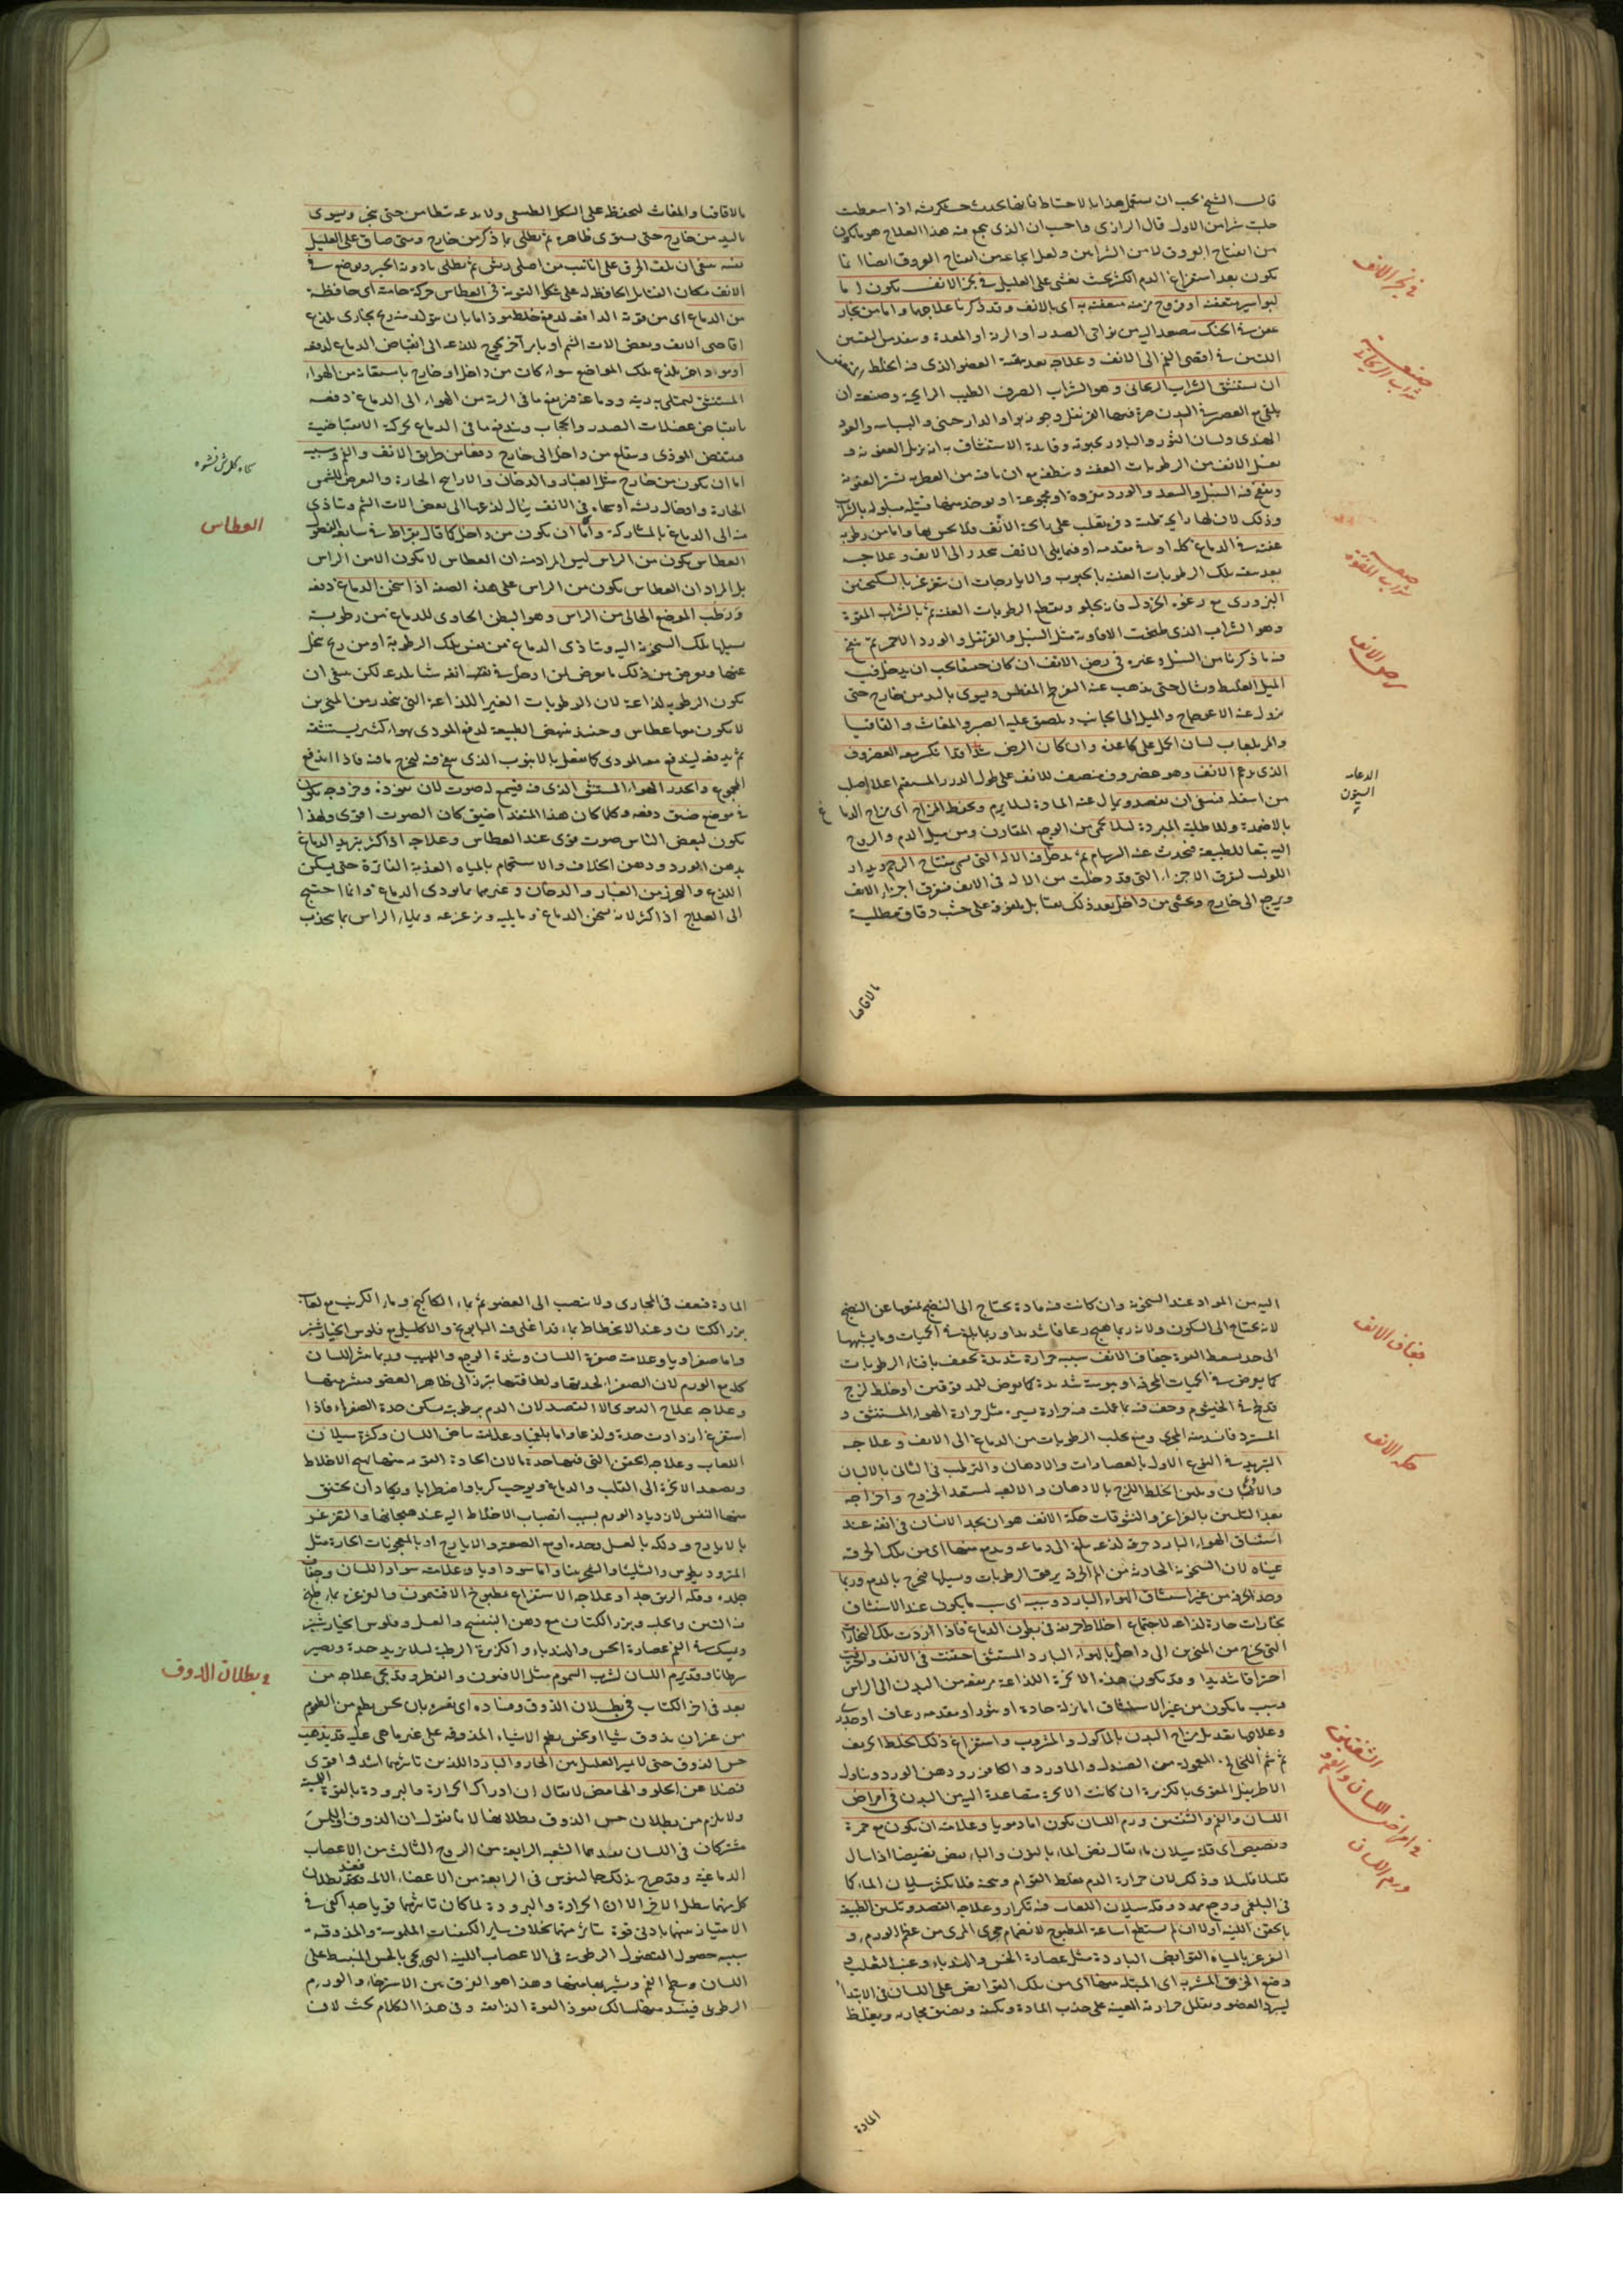 قال الشيخ يجب ان يستعمل هذا بالاحتياط فانها يحدث خشكريشة اذا سقطت
جلبت شرا من الاول قال الرازى واحب ان الذى ينجع فيه هذا العلاج هو ما يكون
من انفتاح العروق لا من الشرايين ولعل الرعاف من انفتاح العروق ايضا انما
يكون بعد استفراغ الدم الكثير بحيث يغشى على العليل فى بخر الانف يكون اما
لبواسير متعفنة او قروح مزمنة متعفنة به اى بالانف وقد ذكرنا علاجها واما من بخار
عفن فى الحنك يصعد اليه من نواحى الصدر او الرية او المعدة
فى اقصى الفم الى الانف وعلاجه بعد تنقية العضو الذى فيه الخلط
ان يستنشق الشراب الريحانى وهو الشراب الصرف الطيب الرايحة وصنعته ان
يلقى مع العصير فى الدن صرة فيها القرنفل وجوزبوا والدارچينى والبسباسه والعود
الهندى ولسان الثور والبادرنجبويه وفايدة الاستنشاق به انه يزيل العفونة و
يغسل الانف من الرطوبات العفنة وينظفه مع ان ما فيه من العطرية يستر العفونة
وينفخ فيه السنبل والسعد والورد مفردة او مجموعة او يوخذ منها فتيلة مبلولة بالشراب
وذلك لان لها رايحة طيبة تغلب على رايحة الانف ولا يحس بها واما من رطوبة
عفنة فى الدماغ كله او فى مقدمه او فيما يلى الانف ينحدر الى الانف وعلاجه
بعد تنقية تلك الرطوبات العفنة بالحبوب والايارجات ان يتغرغر بالسكنجبين
البزورى مع رغوة الخردل فانه يجلو ويقطع الرطوبات العفنة ثم بالشراب المفوه
وهو الشراب الذى طبخت الافاوية مثل السنبل والقرنفل والورد الاحمر ثم ينفخ
فيه ما ذكرنا من السنبل وغيره فى رض الانف ان كان خفيفا يجب ان يدخل فيه
الميل الغليظ ويشال حتى يذهب عنه التفرطح المفطس ويسوى باليد من خارج حتى
يزول عنه الاعوجاج والميل الى الجانب ويلصق عليه الصبر والمغاث والقاقيا
والمر بلعاب لسان الحمل على كاغد وان كان الرض شديدا وقد انكسر معه الغضروف
الذى يدعم الانف وهو غضروف منصف للانف على طول الدرز المستقيم اعلاه اصلب
من اسفله فينبغى ان يفصد ويمال عنه المادة لئلا يرم ويحفظ المزاج اى مزاج الدماغ
بالاضمدة والاطلية المبردة لئلا يحمى من الوجع المقارن ومن ميل الدم والروح
اليه تبعا للطبيعة فيحدث عنه السرسام ثم يدخل فيه الالة التى تسمى مفتاح الرحم ويدار
اللولب ليفرق الاجزاء التى قد دخلت من الالة فى الانف فيفرق اجزاء الانف
ويرجع الى خارج ويحشى من داخل بعد ذلك بفتايل ملفوفة على خشب دقاق مطلية
بالاقاقيا
فى بخر الانف
صنعة شراب الريحانى
صفة شراب المفوه
رض الانف
الدعامه
الستون
بالاقاقيا والمغاث لتحفظ على الشكل الطبيعى ولا يدعه يتطامن حتى ينجبر ويسوى
باليد من خارج حتى يستوى ظاهره ثم يطلى بما ذكر من خارج ومتى ضاق على العليل
نفسه ينبغى ان يلف الخرق على انابيب من اصل ريش ثم يطلى بادوية الجبر ويوضع فى
الانف مكان الفتايل الحافظة له على شكل التسوية فى العطاس حركة حامية اى حافظة
من الدماغ اى من قوته الدافعة لدفع خلط موذ اما بان يتولد منه ريح بخارى يلذع
اقاصى الانف وبعض الات الشم او بامر آخر يحوج للذعه الى انقباض الدماغ لدفعه
او مواد اخر يلذع تلك المواضع سواء كان من داخل او خارج باستعانة من الهواء
المستنشق ليمتلى به ريته ودماغه فيزيد ما فى الرية من الهواء الى الدماغ دفعة
بانقباض عضلات الصدر والحجاب ويندفع ما فى الدماغ بحركة الانقباضية
فينتقص الموذى وينقلع من داخل الى خارج دفعا من طريق الانف والفم وسببه
اما ان يكون من خارج مثل الغبار والدخان والاراييح الحارة والتعرض للشمس
الحارة وادخال ريشة او سحاة فى الانف ينال لذعها الى بعض الات الشم ويتاذى
منه الى الدماغ بالمشاركة واما ان يكون من داخل كما قال بقراط فى سابعة الفصول
العطاس يكون من الراس ليس المراد منه ان العطاس لا يكون الا من الراس
بل المراد ان العطاس يكون من الراس على هذه الصفة اذا سخن الدماغ دفعة
ورطب الموضع الخالى من الراس وهو البطن الحاوى للدماغ من رطوبة
يسيلها تلك السخونة اليه ويتاذى الدماغ من نفس تلك الرطوبة او من ريح ينحل
عنها ويعرض من ذلك ما يعرض لمن ادخل فى ثقبة انفه شيئا يلذعه لكن ينبغى ان
يكون الرطوبة لذاعة لان الرطوبات الغير اللذاعة التى ينحدر من المنخرين
لا يكون معها عطاس وحينئذ ينهض الطبيعة لدفع الموذى بهواء كثير يستنشقه
ثم يدفعه ليندفع معه الموذى كما يفعل بالانبوب الذى ينفخ فيه ليخرج ما فيه فاذا اندفع
المجموع وانحدر الهواء المستنشق الذى فيه فيسمع له صوت لان نفوذه وخروجه يكون
فى موضع ضيق دفعة وكلما كان هذا المنفذ اضيق كان الصوت اقوى ولهذا
يكون لبعض الناس صوت قوى عند العطاس وعلاجه اذا كثر تبريد الدماغ
بدهن الورد ودهن الخلاف والاستحمام بالمياه العذبة الفاترة حتى يسكن
اللذع والتحرز من الغبار والدخان وغيرهما مما يوذى الدماغ وانما احتيج
الى العلاج اذا كثر لانه يسخن الدماغ وما يليه ويزعزعه ويملاء الراس بما يجذب
العطاس
اليه من المواد عند السخونة وان كانت فيه مادة يحتاج الى النضج يمنعها عن النضج
لانه يحتاج الى السكون ولانه ربما هيج رعافا شديدا وربما بلغ فى الحميات وما يشبهها
الى حد يسقط القوة جفاف الانف سببه حرارة شديدة يجفف بافناء الرطوبات
كما يعرض فى الحميات المحرقة او يبوسة شديدة كما يعرض للمدقوقين او خلط لزج
قد لحج فى الخيشوم وجف فيه بما عملت فيه حرارة يسيرة مثل حرارة الهواء المستنشق و
المسترد فانه يسد المجرى ويمنع تحلب الرطوبات من الدماغ الى الانف وعلاجه
التبريد فى النوع الاول بالعصارات والادهان والترطيب فى الثانى بالالبان
والادهان وتليين الخلط اللزج بالادهان والالعبة ليستعد للخروج واخراجه
بعد التليين بالغراغر والنشوقات حكة الانف هو ان يجد الانسان فى انفه عند
استنشاق الهواء البارد حرقة لذاعة يبلغ الى دماغه ويدمع منها اى من تلك الحرقة
عيناه لان السخونة الحادثة من الم الحرقة يرقق الرطوبات ويسيلها فيخرج بالدمع وربما
وجد الحرقة من غير استنشاق الهواء البارد وسببه اى سبب ما يكون عند الاستنشاق
بخارات حادة لذاعة لاجتماع اخلاط حريفة فى بطون الدماغ فاذا اردت تلك البخارات
التى يخرج من المنخرين الى داخل بالهواء البارد المستنشق احتقنت فى الانف واحرقت
احتراقا شديدا وقد يكون هذه الابخرة اللذاعة مرتفعة من البدن الى الراس
وسبب ما يكون من غير الاستنشاق اما نزلة حادة او بثور او مقدمة رعاف او جدرى
وعلاجها تعديل مزاج البدن بالماكول والمشروب واستفراغ ذلك الخلط الحريف
ثم شم اللخالخ المعمولة من الصندل والماورد والكافور ودهن الورد وتناول
الاطريفل المقوى بالكزبرة ان كانت الابخرة متصاعدة اليه من البدن فى امراض
اللسان والفم والشفتين ورم اللسان يكون اما دمويا وعلامته ان يكون مع حمرة
ونضيض اى قلة سيلان ماء يقال نض الماء بالنون والباء ينض نضيضا اذا سال
قليلا قليلا وذلك لان حرارة الدم يغلظ القوام ويسخنه فلا يكثر سيلان الماء كما
فى البلغمى ووجع ممدد وقد يسيل اللعاب فيه بتكرار وعلاجه الفصد وتليين الطبيعة
بالحقن اللينة اولا ان لم يستطع اساغة المطبوخ لانضمام مجرى المرى من عظم الورم و
التغرغر بالمياه القوابض الباردة مثل عصارة الخس والهندباء وعنب الثعلب و
وضع الخرق المشربة اى المبتلة منها اى من تلك القوابض على اللسان فى الابتداء
ليبرد العضو ويقلل حرارته المعينة على جذب المادة ويكثفه ويضيق مجاريه ويغلظ
المادة
جفاف الانف
حكة الانف
فى امراض اللسان والفم والشفتين
ورم اللسان
المادة فيقف فى المجارى ولا ينصب الى العضو ثم بماء الكاكنج وماء الكرنب مع لعاب
بزر الكتان وعند الانحطاط بماء قد اغلى فيه البابونج والاكليل مع فلوس الخيارشنبر
واما صفراويا وعلامته صفرة اللسان وشدة الوجع واللهيب وربما بثر اللسان
كله مع الورم لان الصفراء لحدتها ولطافتها تبرز الى ظاهر العضو فتبثر منها
وعلاجه علاج الدموى الا الفصد لان الدم برطوبته يسكن حدة الصفراء فاذا
استفرغ ازدادت حدة ولذعا واما بلغميا وعلامته بياض اللسان وكثرة سيلان
اللعاب وعلاجه الحقن التى فيها حدة ما لان الحادة القوية منها يهيج الاخلاط
ويصعد الابخرة الى القلب والدماغ ويوجب كربا واضطرابا ويكاد ان يختنق
منها النفس لازدياد الورم بسبب انصباب الاخلاط اليه عند هيجانها والتغرغر
بالايارج ودلكه بالعسل وحده او مع الصعتر والايارج او بالمعجونات الحارة مثل
المثروديطوس والشليثا والسجزينا واما سوداويا وعلامته سواد اللسان وجفاف
جلده وقلة الريق جدا وعلاجه الاستفراغ بمطبوخ الافتيمون والغرغرة بماء طبخ
فيه التين والحلبة وبزر الكتان مع دهن البنفسج والعسل وفلوس الخيارشنبر
ويمسك فى الفم عصارة الخس والهندباء والكزبرة الرطبة لئلا يزيد حدة ويصير
سرطانا وقد يرم اللسان لشرب السموم مثل الافيون والفطر وقد يجى علاجه من
بعد فى اخر الكتاب فى بطلان الذوق وفساده اى تغيره بان يحس بطعم من الطعوم
من غير ان يذوق شيئا او يحس بطعم الاشياء المذوقة على غير ما هى عليه قد يذهب
حس الذوق حتى لا يميز العليل بين الحار والبارد اللذين تاثيرهما اشد واقوى
فضلا عن الحلو والحامض لا يقال ان ادراك الحرارة والبرودة بالقوة اللمسية
ولا يلزم من بطلان حس الذوق بطلانها لانا نقول ان الذوق واللمس
مشتركان فى اللسان يفيدهما الشعبة الرابعة من الزوج الثالث من الاعصاب
الدماغية وقد صرح بذلك جالينوس فى الرابعة من الاعضاء الالمة فعند بطلان
كل منهما يبطل الاخر الا ان الحرارة والبرودة لما كان تاثيرهما قويا جدا كفى فى
الامتياز بينهما بادنى قوة تتاثر منهما بخلاف ساير الكيفيات الملموسة والمذوقة
سببه حصول الفضول الرطوبية فى الاعصاب اللينة التى تجى بالحس المنبسط على
اللسان وسطح الفم وتشربها منها وهذا هو الفرق بين الاسترخاء والورم
الرطوبى فينسد منها مسالك نفوذ القوة الذايقة وفى هذا الكلام بحث لان
فى بطلان الذوق